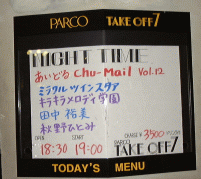 PARCO TAKE OFF 7
NIGHT TIME
あいどる Chu-Mail Vol.12
ミラクルツインスター
キラキラメロディ学園
田中裕美
秋野ひとみ
OPEN START
18:30 19:00
CHARGE ¥3500
PARCO
TAKE OFF 7
TODAY'S MENU